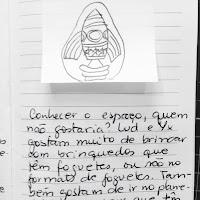 Conhecer o espaço, quem
não gostaria? Lud e Yx
gostam muito de brincar
com brinquedos que
têm foguetes, ou não no
formato de foguetes. Tam-
bém gostam de ir no plane-
que têm